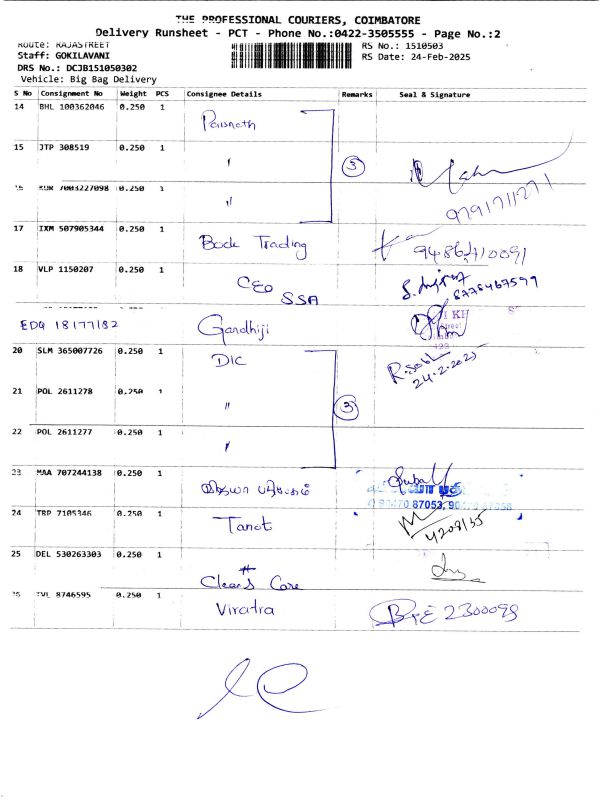 THE PROFESSIONAL COURIERS, COIMBATORE
Delivery Runsheet - PCT - Phone No.:0422-3505555 - Page No.:2
Route: RAJASTREET
RS No.: 1510503
Staff: GOKILAVANI
RS Date: 24-Feb-2025
DRS No.: DCJB151050302
Vehicle: Big Bag Delivery
S No Consignment No Weight PCS Consignee Details Remarks Seal & Signature
14 BHL 100362046 0.250 1
15 JTP 308519 0.250 1 〃 3
7003227098 0.250 1 〃
9791711271
17 IXM 507905344 0.250 1 Trading 9486410091
18 VLP 1150207 0.250 1 CEO SSA
8778467599
EDQ 18177182 Gandhiji
20 SLM 365007726 0.250 1 DIC
24.2.2025
21 POL 2611278 0.250 1 〃 3
22 POL 2611277 0.250 1 〃
23 MAA 707244138 0.250 1
87053,
24 TRP 7105346 0.250 1 Tanot
4208135
25 DEL 530263303 0.250 1 Care
TVL 8746595 0.250 1 Viratra 2300098